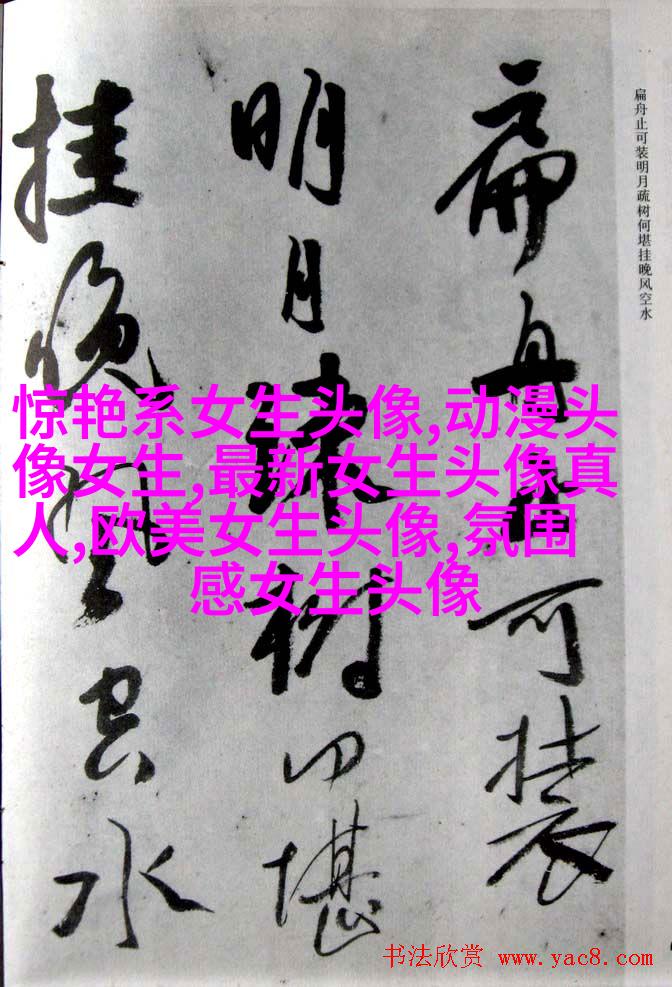 扁舟止可装
明月疏树何堪
挂晚风空水
扁舟止可装明月疏树何堪挂晚风空水
惊艳系女生头像,动漫头
像女生,最新女生头像真
人,欧美女生头像,氛围
感女生头像
书法欣赏 www.yac8.com